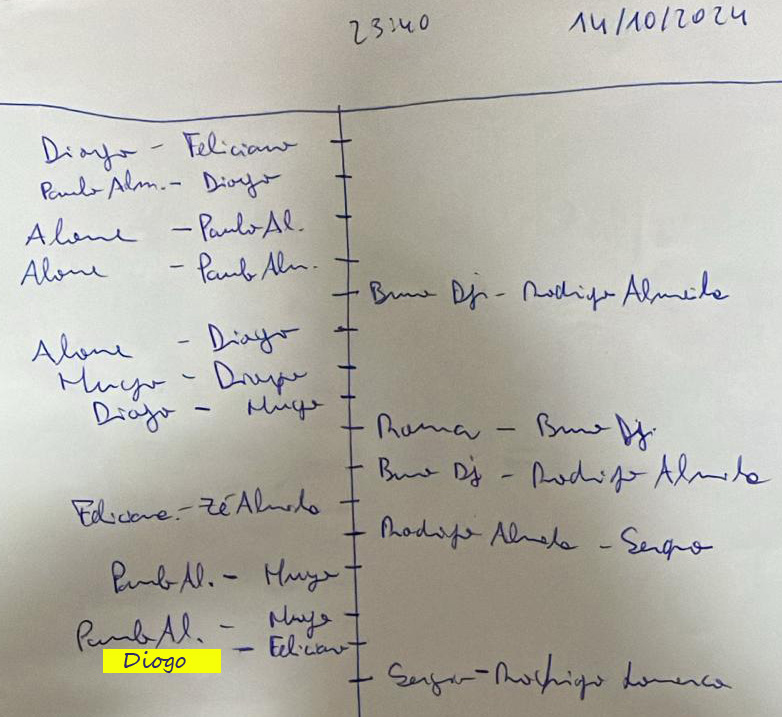 23:40 14/10/2024
Diogo - Feliciano
Paulo Alm. - Diogo
Alone - Paulo Al.
Alone - Paulo Alm.
Bruno Dj - Rodrigo Almeida
Alone - Diogo
Hugo - Diogo
Diogo - Hugo
Roma - Bruno Dj.
Bruno Dj - Rodrigo Almeida
Feliciano - Zé Almeida
Rodrigo Almeida - Sergio
Paulo Al. - Hugo
Paulo Al. - Hugo
Diogo - Feliciano
Sergio - Rodrigo Lourenco